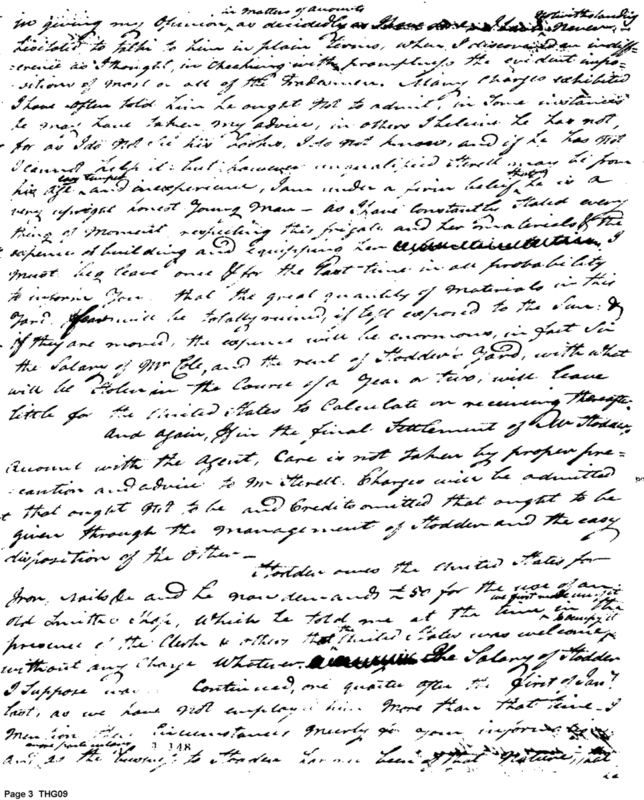 in matters of accounts
in giving my Opinion, as decidedly as I have
Notwithstanding
hesitated to talk to him in plain terms, when I discovered an indiff-
-erence as I thought, in checking with promptness the evident impo-
-sitions of most or all of the Tradesmen. Many Charges exhibited
I have often told him he ought not to admit, in Some instances
he may have taken my advice, in others I believe he has not,
for as I do not See his books, I do not know, and if he has not
I cannot help it: but however unqualified Sterett may be from
easy temper
his age and inexperience, I am under a firm belief that he is a
very upright honest Young Man - as I have constantly Stated every
thing of Moment respecting this frigate and her materials & the
expence of building and equipping her I
must beg leave once & for the last time in all probability
to inform You that the great quantity of Materials in this
Yard will be totally ruined, if left exposed to the Sun: &
if they are moved, the expence will be enormous, in fact Sir
the Salary of Mr Cole, and the rent of Stodder's Yard, with what
will be Stolen in the Course of a Year or two, will leave
little for the United States to Calculate on receiving thereafter
And again, If in the final Settlement of Mr Stodder
Account with the Agent, Care is not taken by proper pre=
-caution and advice to Mr Sterett. Charges will be admitted
that ought Not to be and Credits omitted that ought to be
given through the management of Stodder and the easy
disposition of the Other -
Stodder owes the United States for
Iron, Nails &c and he now demands £50 for the use of an
old Smiths Shop, which he told me at the time in the
presence of the Clerk & others that the United States was welcome
without any Charge whatever. The Salary of Stodder
I Suppose was Continued, one quarter after the first of Jany
last, as we have not employed him More than that time - I
Mention these Circumstances merely for your information
more particulars
148
and as the to Stodder has not been of that Nature, 
Page 3 THG09